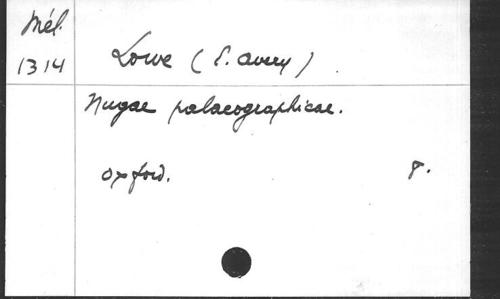 Mél.
1314
Lowe (E. Avery).
Nugae palaeographicae.
Oxford. 8.